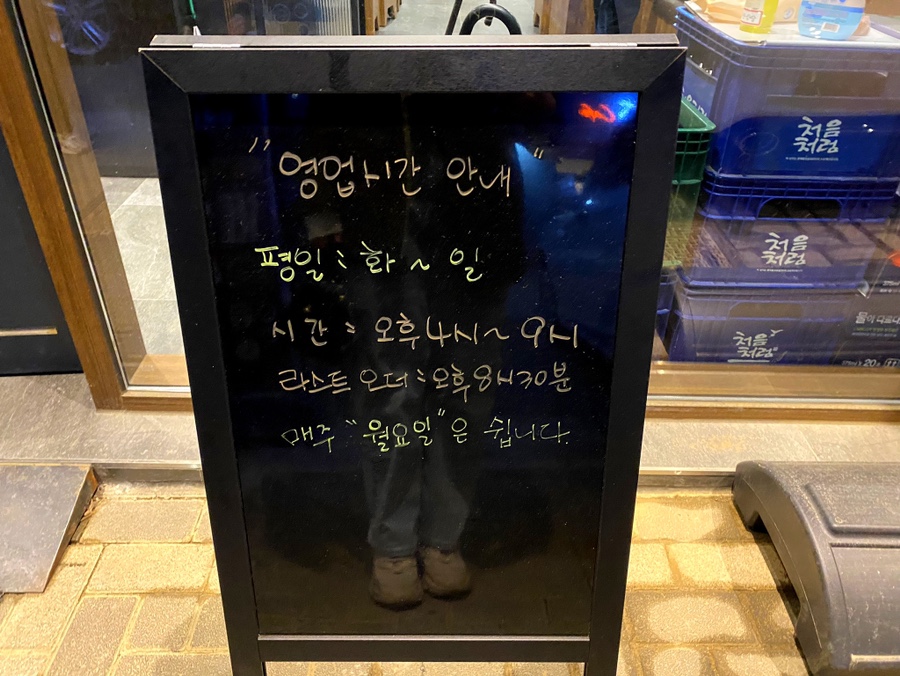 "영업시간 안내"
평일 : 화 ~ 일
시간 : 오후 4시 ~ 9시
라스트 오더 : 오후 8시 30분
매주 "월요일"은 쉽니다.
처음
처럼
처음
처럼
처음
처럼